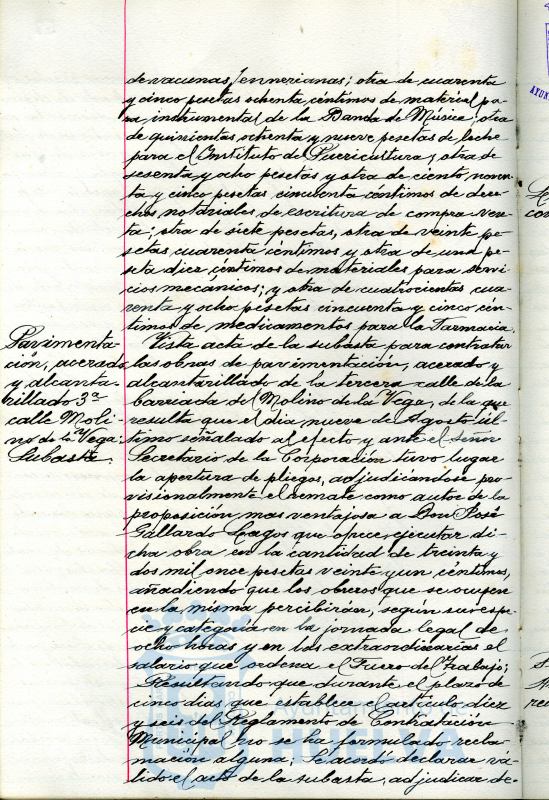 de vacunas Jennerianas; otra de cuarenta
y cinco pesetas ochenta céntimos de material pa-
ra instrumental de la Banda de Música; otra
de quinientas ochenta y nueve pesetas de leche
para el Instituto de Puericultura; otra de
sesenta y ocho pesetas y otra de ciento noven-
ta y cinco pesetas cincuenta céntimos de dere-
chos notariales de escritura de compra ven-
ta; otra de siete pesetas, otra de veinte pe-
setas cuarenta céntimos y otra de una pe-
seta diez céntimos de materiales para servi-
cios mecánicos; y otra de cuatrocientas cua-
renta y ocho pesetas cincuenta y cinco cén-
timos de medicamentos para la Farmacia.
Pavimenta-
ción, acerado
y alcanta-
rillado 3ª
calle Moli-
no de la Vega.
Subasta.
Vista acta de la subasta para contratar
las obras de pavimentación, acerado y
alcantarillado de la tercera calle de la
barriada del Molino de la Vega, de la que
resulta que el dia nueve de Agosto úl-
timo señalado al efecto y ante el señor
Secretario de la Corporación tuvo lugar
la apertura de pliegos, adjudicándose pro-
visionalmente el remate como autor de la
proposición mas ventajosa a Don José
Gallardo Lagos que ofrece ejecutar di-
cha obra en la cantidad de treinta y
dos mil once pesetas veinte y un céntimos,
añadiendo que los obreros que se ocupen
en la misma percibirán, según su espe-
cie y categoría en la jornada legal de
ocho horas y en las extraordinarias el
salario que ordena el Fuero del Trabajo;
Resultando que durante el plazo de
cinco dias que establece el artículo diez
y seis del Reglamento de Contratación
Municipal no se ha formulado recla-
mación alguna; Se acordó declarar vá-
lido el acto de la subasta, adjudicar de-
Ayuntamiento
HUELVA